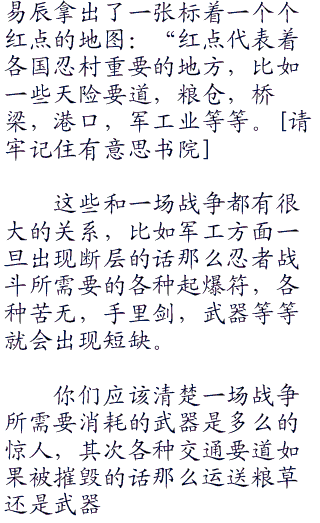 易辰拿出了一张标着一个个
红点的地图：“红点代表着
各国忍村重要的地方，比如
一些天险要道，粮仓，桥
梁，港口，军工业等等。[请
牢记住有意思书院]
这些和一场战争都有很
大的关系，比如军工方面一
旦出现断层的话那么忍者战
斗所需要的各种起爆符，各
种苦无，手里剑，武器等等
就会出现短缺。
你们应该清楚一场战争
所需要消耗的武器是多么的
惊人，其次各种交通要道如
果被摧毁的话那么运送粮草
还是武器